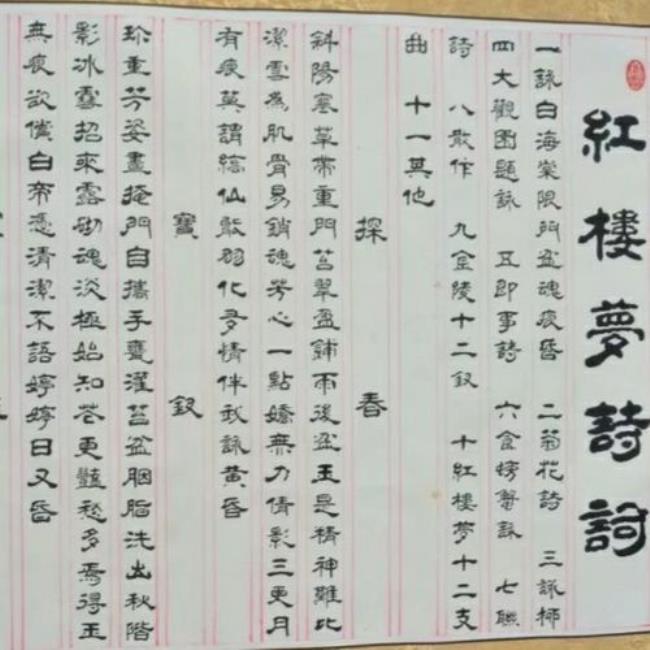 紅樓夢詩詞
一詠白海棠限門盆魂痕昏 二菊花詩 三詠柳
四大觀園題詠 五即事詩 六食螃蟹詠 七聯
詩 八散作 九金陵十二釵 十紅樓夢十二支
曲 十一其他
探春
斜陽寒草帶重門苔翠盈鋪雨後盆玉是精神難比
潔雪為肌骨易銷魂芳心一點嬌無力倩影三更月
有痕莫謂縞仙能羽化多情伴我詠黃昏
寶釵
珍重芳姿晝掩門自攜手甕灌苔盆胭脂洗出秋階
影冰雪招來露砌魂淡極始知花更豔愁多焉得玉
無痕欲償白帝憑清潔不語婷婷日又昏